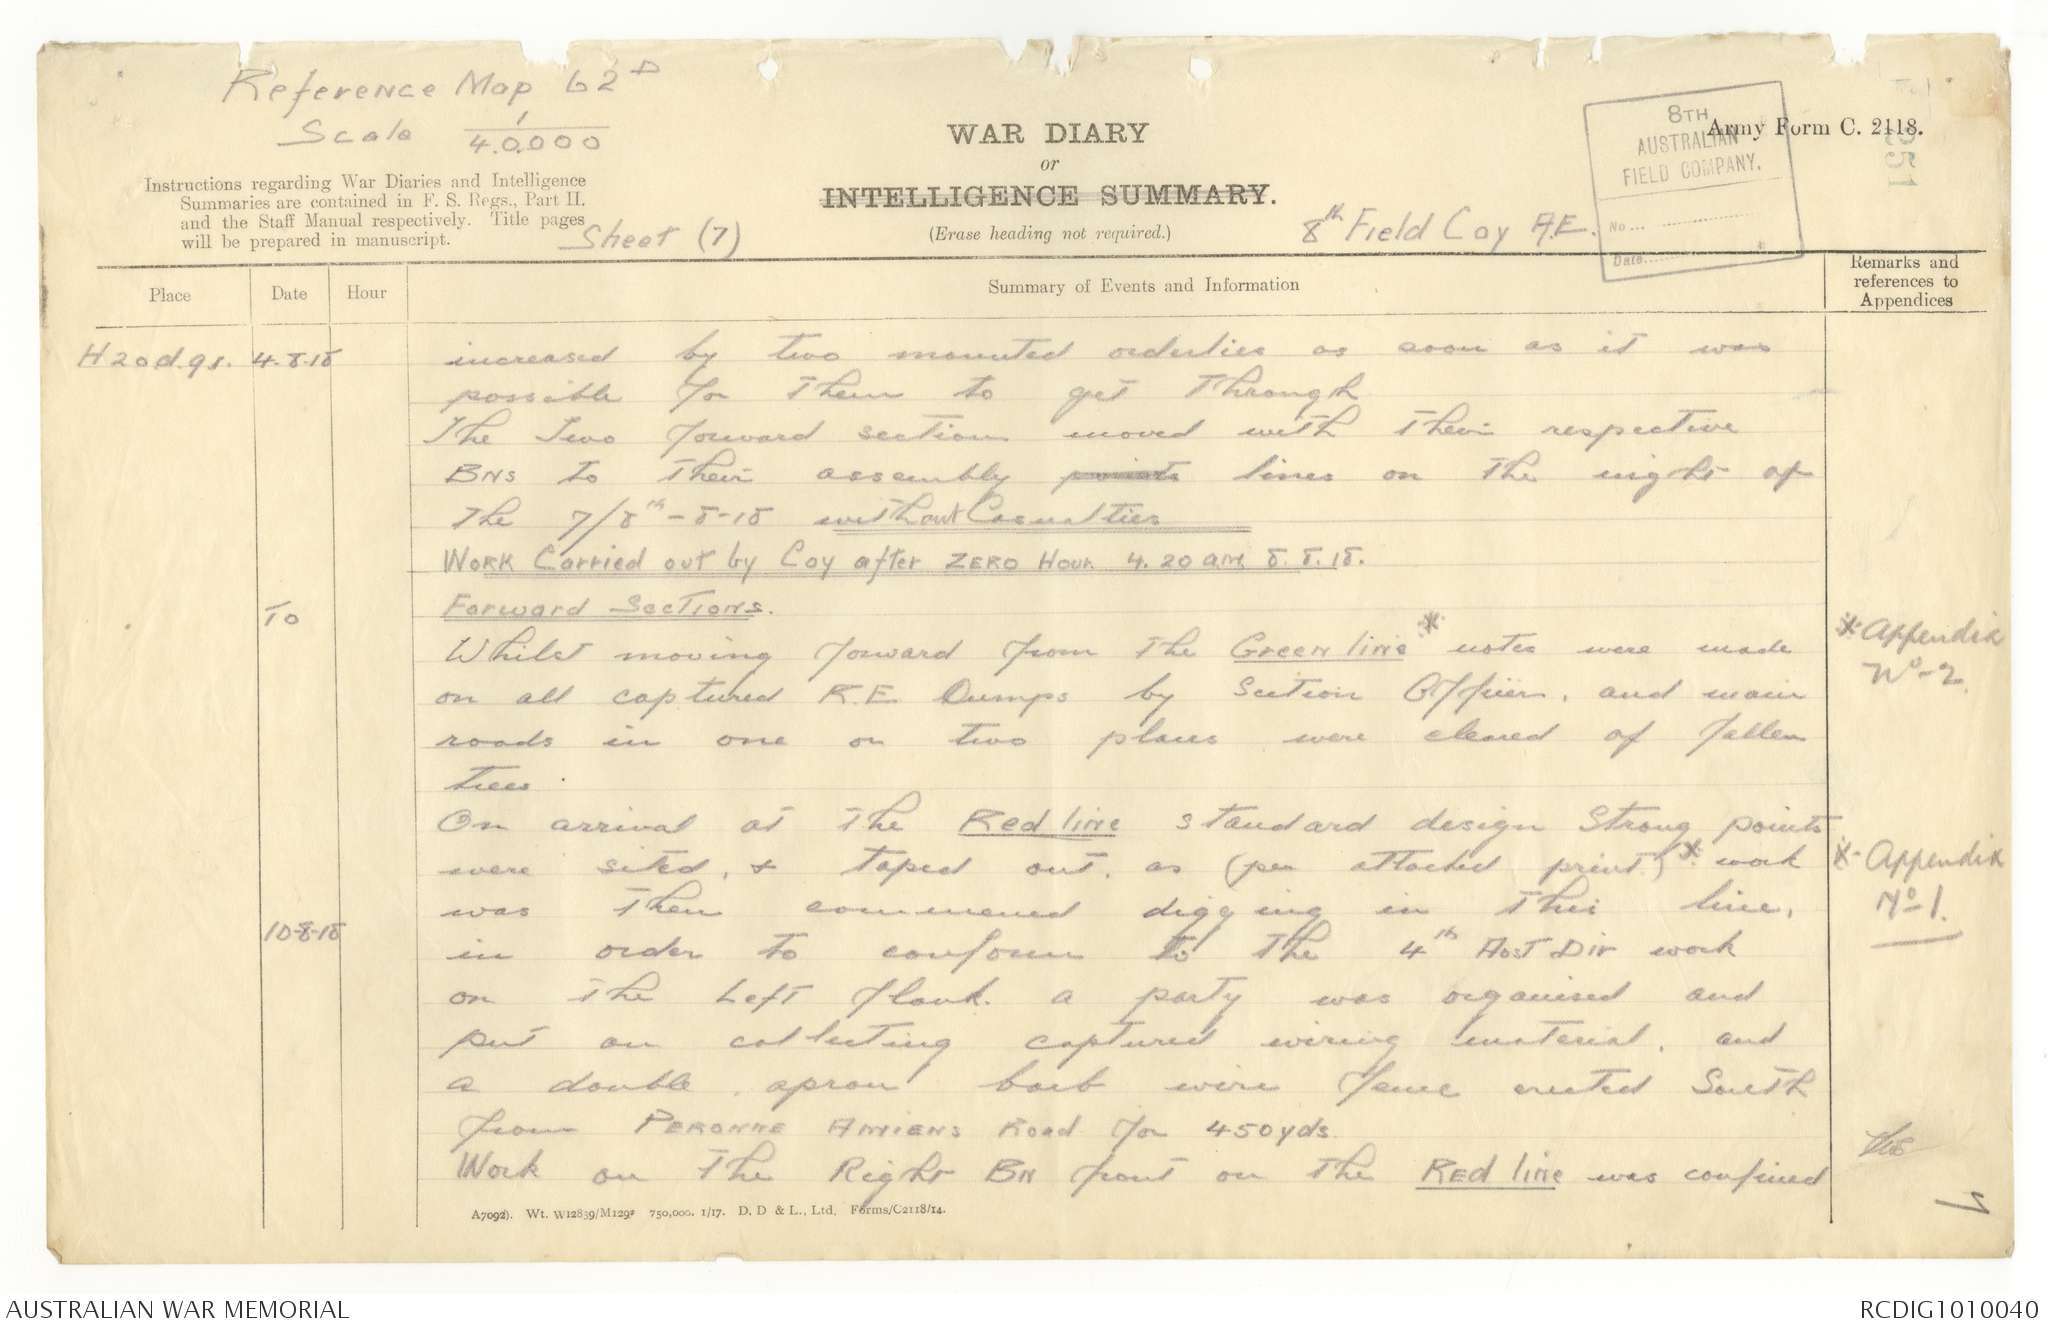 Reference Map 62D
Scale 1/40,000
WAR DIARY
or
INTELLIGENCE SUMMARY.
(Erase heading not required.)
Army Form C. 2118.
8TH
AUSTRALIAN
FIELD COMPANY.
No.
Date
Instructions regarding War Diaries and Intelligence
Summaries are contained in F. S. Regs., Part II.
and the Staff Manual respectively. Title pages
will be prepared in manuscript.
Sheet (7)
8th Field Coy A.E.
Place
Date
Hour
Summary of Events and Information
Remarks and
references to
Appendices
H20d.91. 4-8-18
increased by two mounted orderlies as soon as it was
possible for them to get through
The Two forward sections moved with their respective
BNS to their assembly points lines on the night of
the 7/8th-8-18 without Casualties
Work Carried out by Coy after ZERO Hour 4.20 a.m. 8.8.18.
To
Forward Sections.
Whilst moving forward from the Green line * notes were made
on all captured R.E Dumps by Section Officers, and main
roads in one or two places were cleared of fallen
trees.
* Appendix
No-2.
On arrival at the Red line standard design Strong points
were sited, & taped out, as (per attached print) * work
was then commenced digging in this line,
* Appendix
No-1.
10-8-18
in order to conform to the 4th Aust Div work
on the Left flank. a party was organised and
put on collecting captured wiring material, and
a double apron barb wire fence erected South
from PERONNE AMIENS Road for 450yds
Work on the Right BN front on the Red line was confined
A7092). Wt. W12839/M1292 750,000. 1/17. D. D & L., Ltd. Forms/C2118/14.
AUSTRALIAN WAR MEMORIAL
RCDIG1010040